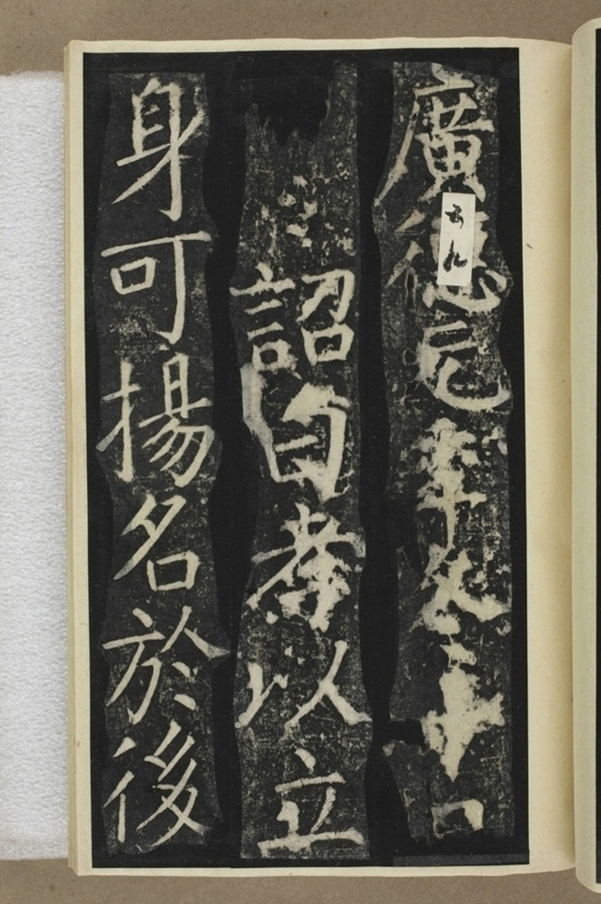 廣德元年
詔曰孝以立
身可揚名於後